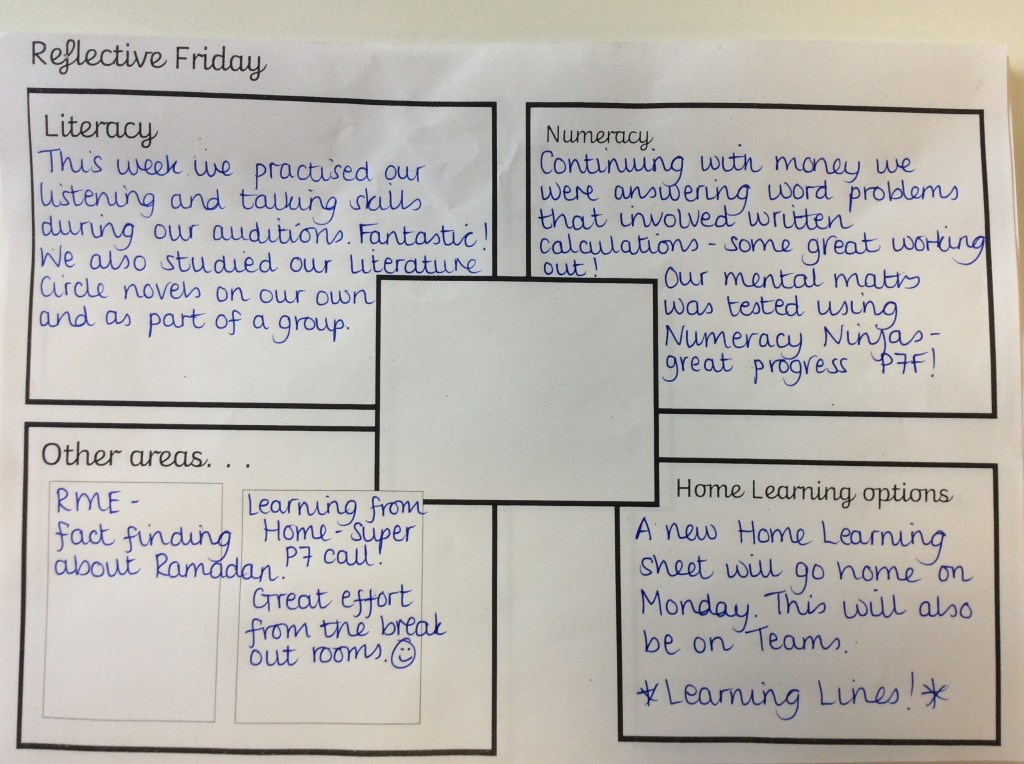 Reflective Friday
Literacy
This week we practised our
listening and talking skills
during our auditions. Fantastic!
We also studied our Literature
Circle novels on our own
and as part of a group.
Numeracy
Continuing with money we
were answering word problems
that involved written
calculations - some great working
out!
Our mental maths
was tested using
Numeracy Ninjas -
great progress P7F!
Other areas. . .
RME -
fact finding
about Ramadan.
Learning from
Home - Super
P7 call!
Great effort
from the break
out rooms. ☺
Home Learning options
A new Home Learning
sheet will go home on
Monday. This will also
be on Teams.
*Learning Lines!*